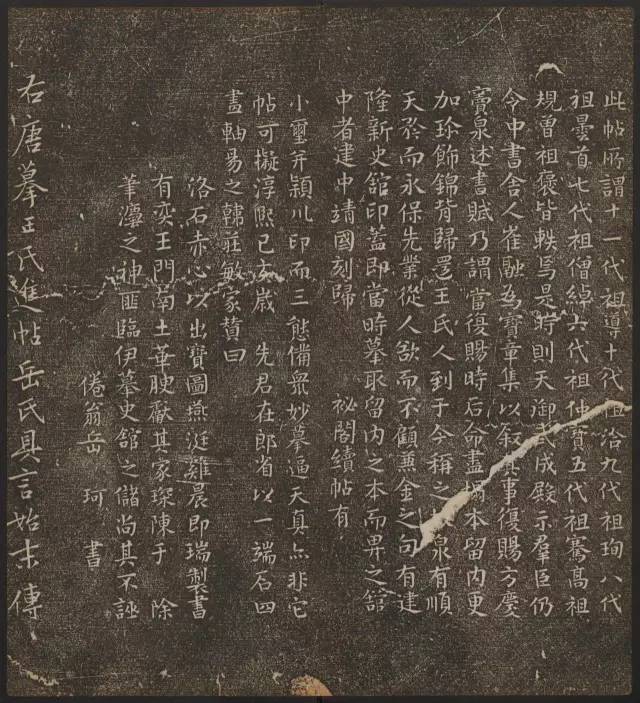 此帖所謂十一代祖導十代祖洽九代祖珣八代
祖曇首七代祖僧綽六代祖仲寶五代祖騫高祖
規曾祖褒皆軼焉是時則天御武成殿示羣臣仍
令中書舍人崔融為寶章集以叙其事復賜方慶
竇泉述書賦乃謂當復賜時后命盡搨本留內更
加珍飾錦背歸還王氏人到于今稱之泉有順
天矜而永保先業從人欲而不顧兼金之句有建
隆新史舘印蓋即當時摹取留內之本而畀之舘
中者建中靖國刻歸 祕閣續帖有
小璽并潁川印而三態備衆妙摹逼天真亦非它
帖可擬淳熙己亥歲 先君在郎省以一端石四
畫軸易之韓莊敏家贊曰
洛石赤心以出寶圖燕涎雞晨即瑞製書
有奕王門茅土華腴獻其家琛陳于 除
筆瀵之神匪臨伊摹史舘之儲尚其不誣
倦翁岳 珂 書
右唐摹王氏進帖岳氏具言始末傳